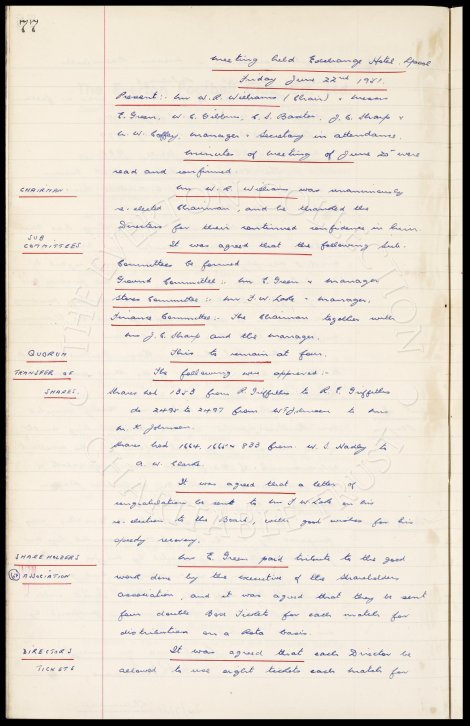 77
Meeting held Exchange Hotel Lpool
Friday June 22nd 1951.
Present:- Mr W. R. Williams (Chair) & Messrs
E. Green, W. C. Gibbins, C. S. Baxter, J. C. Sharp &
N. W. Coffey, Manager & Secretary in attendance.
Minutes of meeting of June 20th were
read and confirmed.
CHAIRMAN. Mr W. R. Williams was unanimously
re-elected Chairman, and he thanked the
Directors for their continued confidence in him
SUB COMMITTEES It was agreed that the following Sub-
Committees be formed
Ground Committee:- Mr E. Green & Manager
Stores Committee:- Mr T. W. Lake & Manager.
Finance Committee:- The Chairman together with
Mr J. C. Sharp and the manager.
QUORUM This to remain at four.
TRANSFER OF The following was approved:-
SHARES. Shares No 1353 from P. Griffiths to R. E. Griffiths
do 2495 to 2497 from W. Johnson to Mrs
M. K. Johnson.
Shares No 1664, 1665 & 833 from W. S. Hadley to
A. W. Clarke.
It was agreed that a letter of
congratulation be sent to Mr T. W. Lake on his
re-election to the Board, with good wishes for his
speedy recovery.
SHAREHOLDERS Mr E. Green paid tribute to the good
ASSOCIATION work done by the executive of the Shareholders
association, and it was agreed that they be sent
four double Box Tickets for each match for
distribution on a Rota basis.
DIRECTORS It was agreed that each Director be
TICKETS allowed to use eight tickets each match for
THE EVERTON COLLECTION CHARITABLE TRUST